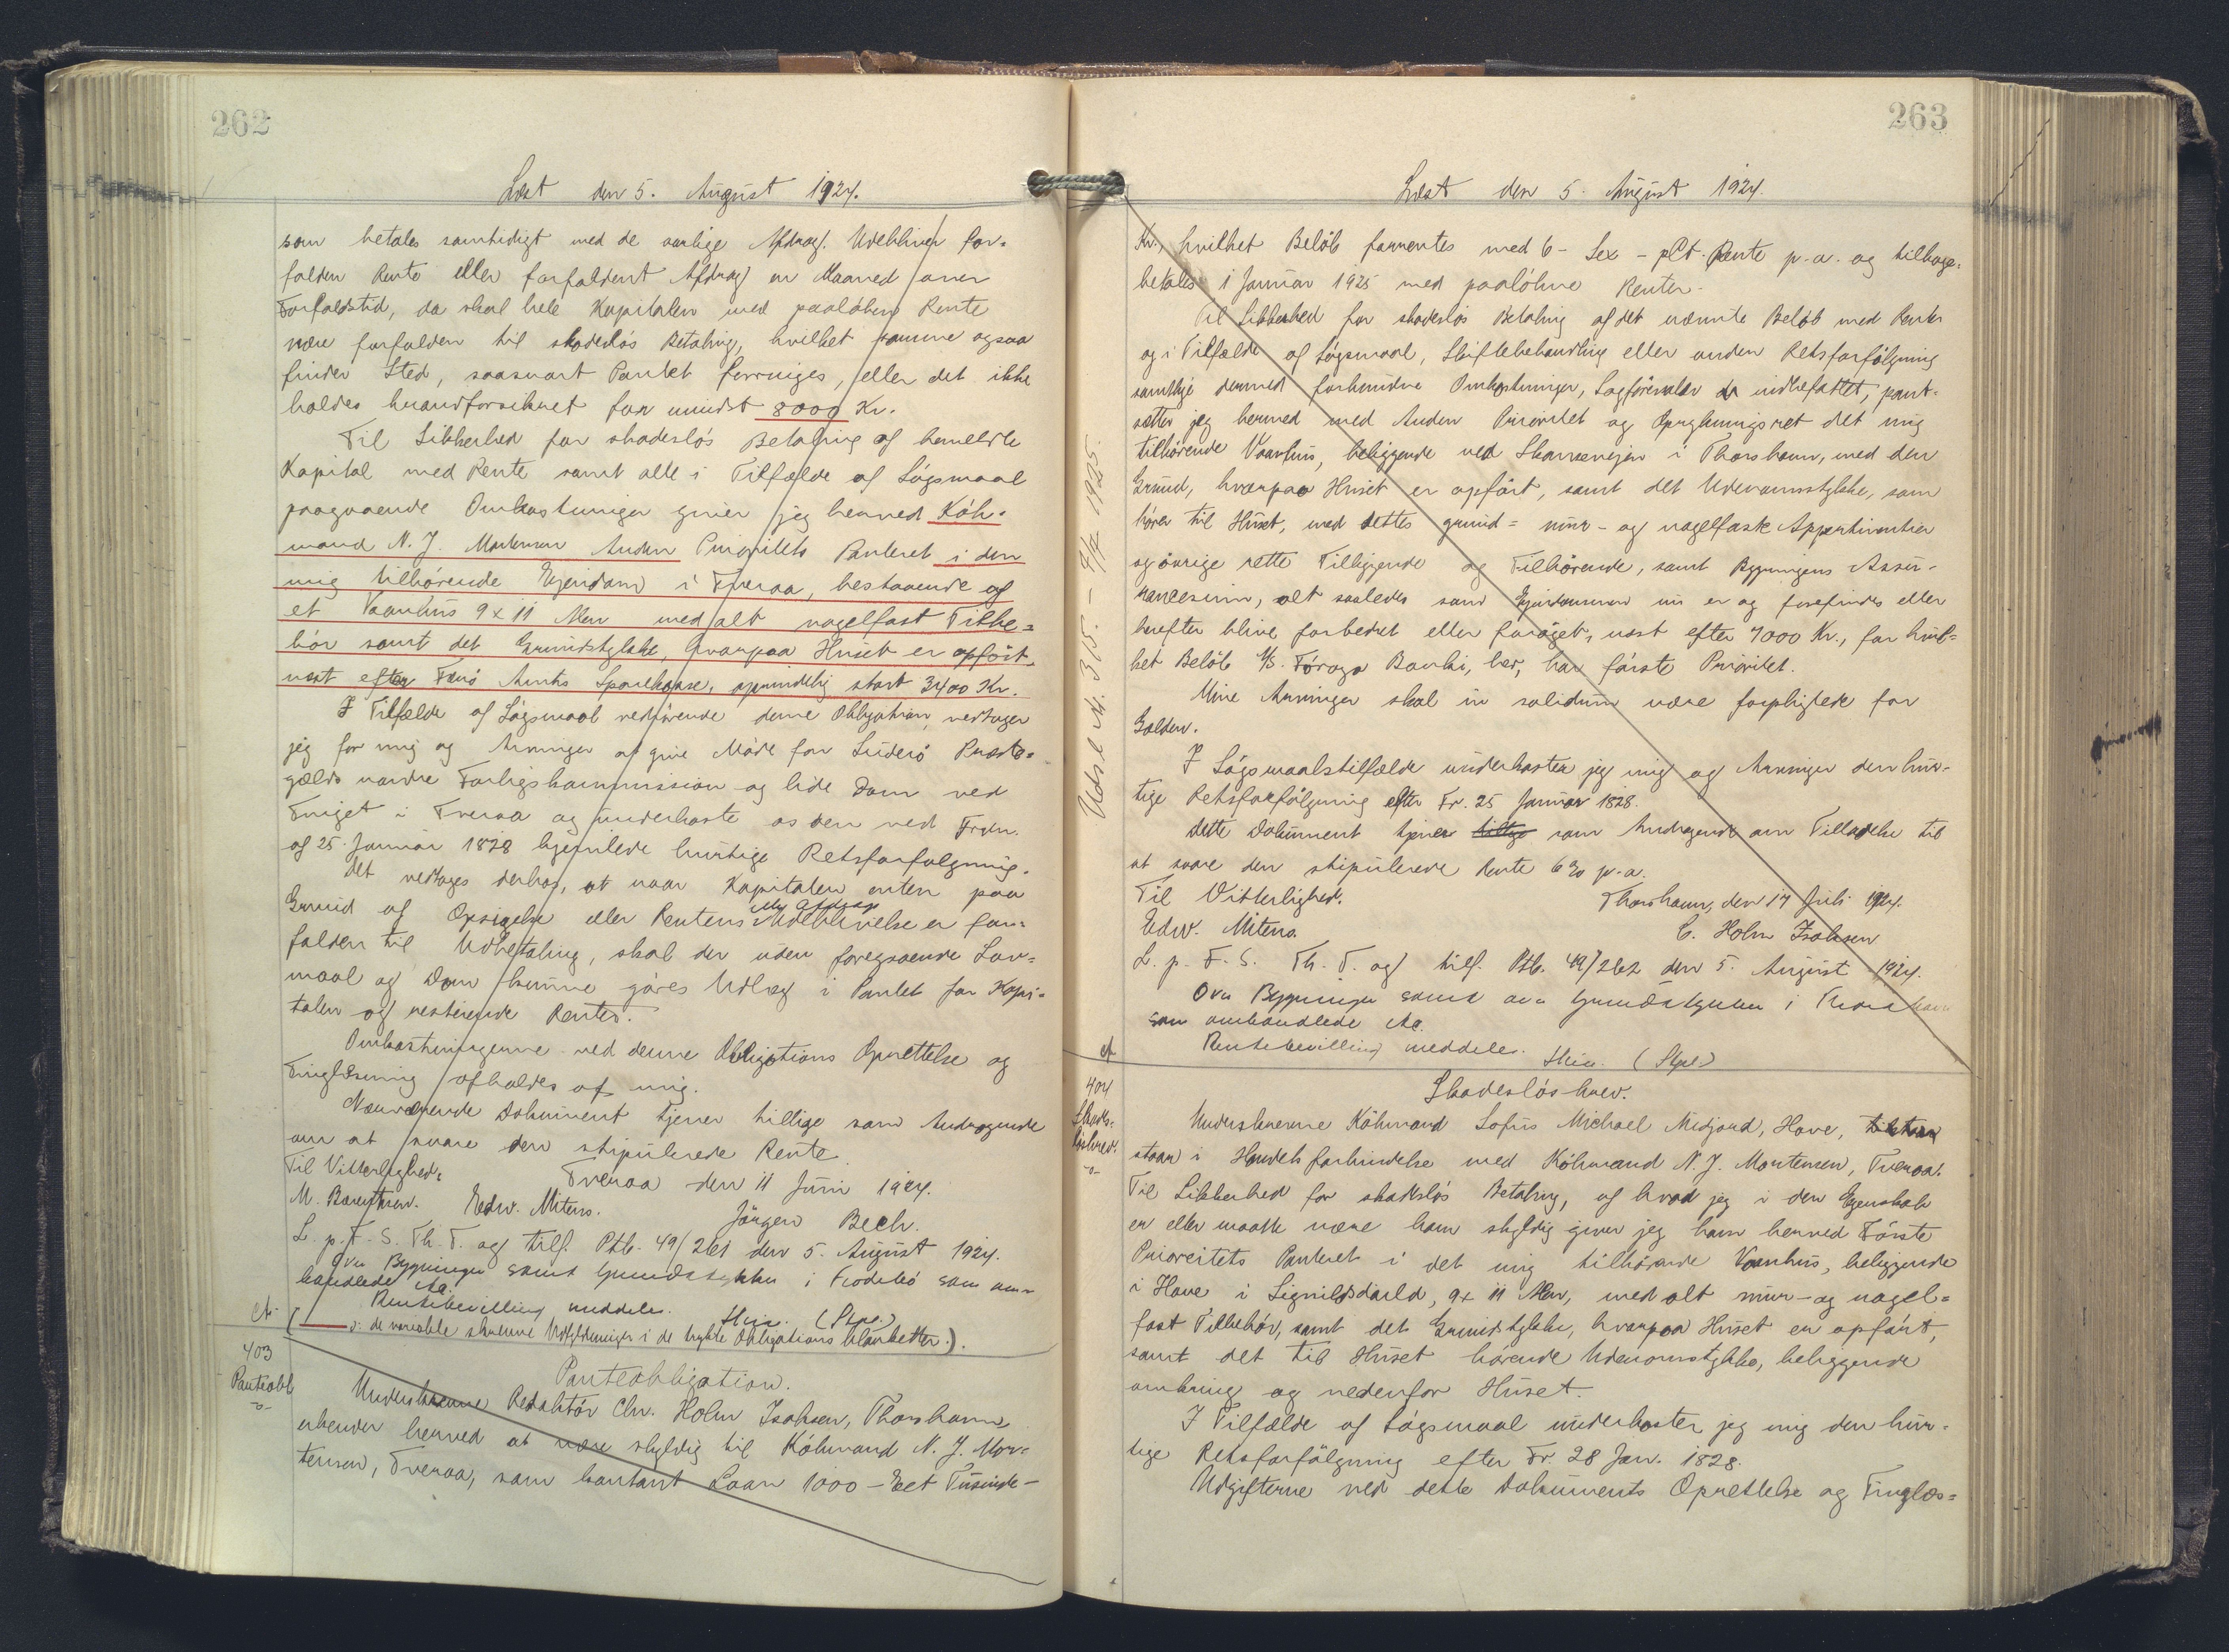 262
Læst den 5. August 1924.
som betales samtidigt med de aarlige Afdrag. Udebliver for-
falden Rente eller forfaldent Afdrag en Maaned over
Forfaldstid, da skal hele Kapitalen med paaløben Rente
være forfalden til skadesløs Betaling, hvilket samme ogsaa
finder Sted, saasnart Pantet forringes, eller det ikke
holdes brandforsikret for mindst 8000 Kr.
Til Sikkerhed for skadesløs Betaling af bemeldte
Kapital med Rente samt alle i Tilfælde af Søgsmaal
paagaaende Omkostninger giver jeg herved Køb-
mand N. J. Mortensen Anden Prioritets Panteret i den
mig tilhørende Ejendom i Tveraa, bestaaende af
et Vaanhus 9 x 11 Alen med alt nagelfast Tilbe=
hør samt det Grundstykke, hvorpaa Huset er opført,
næst efter Færø Amts Sparekasse, oprindelig stort 3400 Kr.
I Tilfælde af Søgsmaal vedrørende denne Obligation vedtager
jeg for mig og Arvinger at give Møde for Suderø Præste-
gælds nordre Forligskommission og lide Dom ved
Tinget i Tveraa og underkaste os den ved Frdn.
af 25. Januar 1828 hjemlede hurtige Retsforfølgning.
Det vedtages derhos, at naar Kapitalen enten paa
Grund af Opsigelse eller Rentens eller Afdrags Udeblivelse er for-
falden til Udbetaling, skal der uden foregaaende Lov=
maal og Dom kunne gøres Udlæg i Pantet for Kapi=
talen og resterende Renter.
Omkostningerne ved denne Obligations Oprettelse og
Tinglæsning afholdes af mig.
Nærværende Dokument tjener tillige som Andragende
om at svare den stipulerede Rente
Til Vitterlighed: Tveraa den 11 Juni 1924.
M. Edw. Mitens. Jørgen Bech.
L. p. F. S. Th. T. og tilf. Ptb. 49/261 den 5. August 1924.
Ovn Bygninger samt Grundstykke i Frodebø som om-
handlede Ao.
Rentebevilling meddeles.
( ___ ɔ: de variable skrevne Udfyldninger i de trykte Obligations blanketter.).
403
Panteobl
Panteobligation.
Underskrevne Redaktør Chr. Holm Isaksen, Thorshavn
erkender herved at være skyldig til Købmand N. J. Mor=
tensen, Tveraa, som kontant Laan 1000 - Eet Tusinde -
263
Læst den 5. August 1924.
Kr., hvilket Beløb forrentes med 6 - Sex - pCt. Rente p.a. og tilbage-
betales 1 Januar 1925 med paaløbne Renter.
Til Sikkerhed for skadesløs Betaling af det nævnte Beløb med Renter
og i Tilfælde af Søgsmaal, Skiftebehandling eller anden Retsforfølgning
samtlige dermed forbundne Omkostninger, Sagførersalær indbefattet, pant-
sætter jeg herved med Anden Prioritet og Oprykningsret det mig
tilhørende Vaanhus, beliggende ved Skansevejen i Thorshavn, med den
Grund, hvorpaa Huset er opført, samt det Udenomsstykke, som
hører til Huset, med dettes grund= mur- og nagelfaste Appertinentier
og øvrige rette Tilliggende og Tilhørende, samt Bygningens Assu-
rancesum, alt saaledes som Ejendommen nu er og forefindes eller
herefter blive forbedret eller forøget, næst efter 7000 Kr., for hvil=
ket Beløb A/S. Føroya Banki, her, har første Prioritet.
Mine Arvinger skal in solidum være forpligtede for
Gælden.
I Søgsmaalstilfælde underkaster jeg mig og Arvinger den hur-
tige Retsforfølgning efter Fr. 25 Januar 1828.
Dette Dokument tjener som Andragende om Tilladelse til
at svare den stipulerede Rente 6% p.a.
Til Vitterlighed. Thorshavn, den 17 Juli 1924.
Edw. Mitens. C. Holm Isaksen
L. p. F. S. Th. T. og tilf. Ptb. 49/262 den 5. August 1924.
Ovn Bygninger samt Grundstykke i Thorshavn
som omhandlede Ao.
Rentebevilling meddeles.
Udsl. 315 - 1925.
404
Skades-
løsbrev.
Skadesløsbrev.
Underskrevne Købmand Sofus Michael Midjord, Hove,
staar i Handels forbindelse med Købmand N. J. Mortensen, Tveraa.
Til Sikkerhed for skadesløs Betaling, af hvad jeg i den Egenskab
er eller maatte være ham skyldig giver jeg ham herved Første
Prioritets Panteret i det mig tilhørende Vaanhus, beliggende
i Hove i, 9 x 11 Alen, med alt mur- og nagel=
fast Tilbehør, samt det Grundstykke, hvorpaa Huset er opført,
samt det til Huset hørende Udenomsstykke, beliggende
omkring og nedenfor Huset.
I Tilfælde af Søgsmaal underkaster jeg mig den hur-
tige Retsforfølgning efter Fr. 28 Jan. 1828.
Udgifterne ved dette Dokuments Oprettelse og Tinglæs=